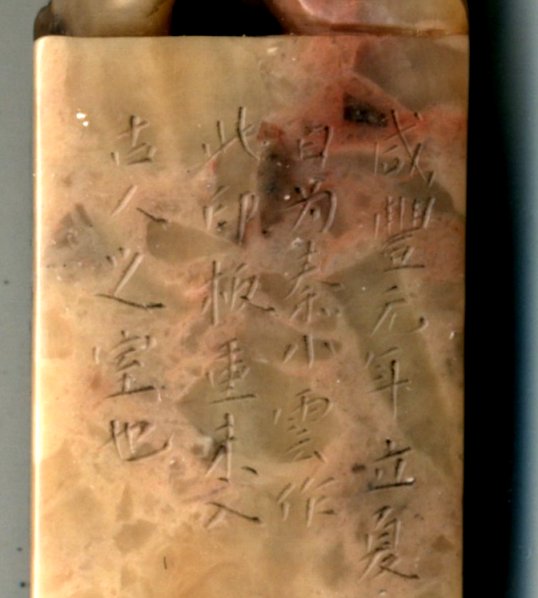 咸豐元年立夏
日为秦小雲作
此印板重未入
古人之室也